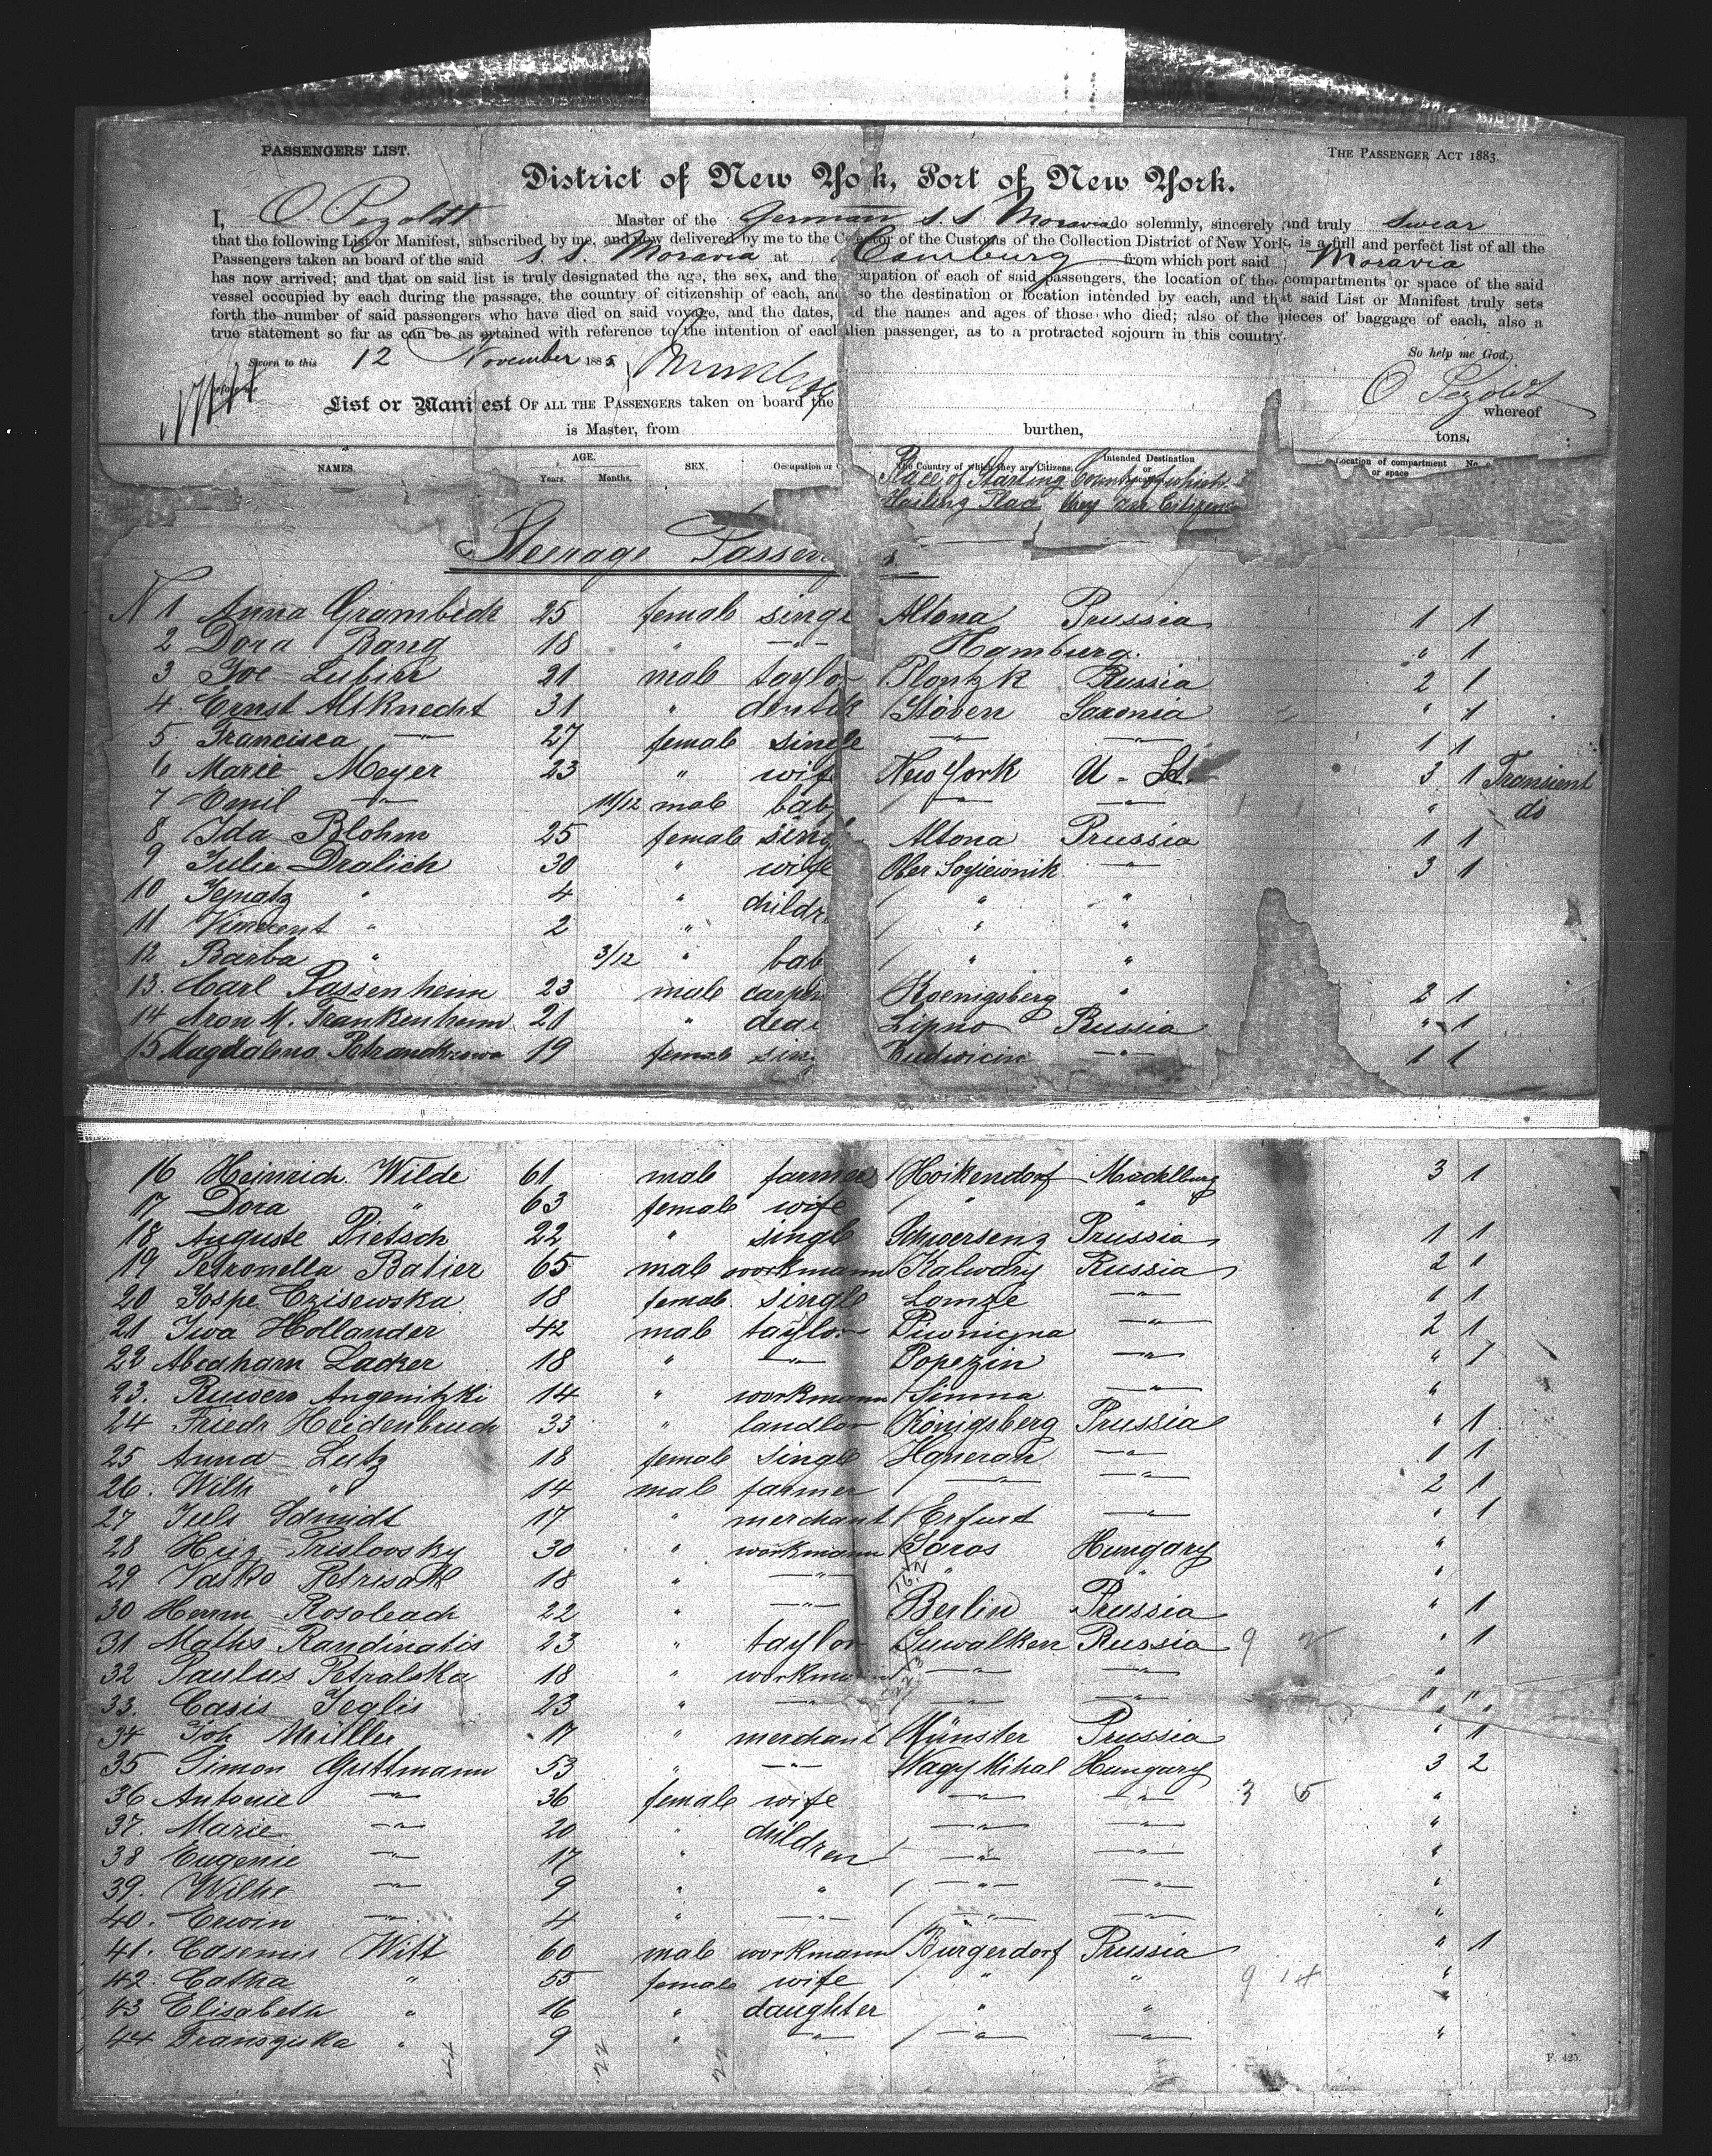 PASSENGERS' LIST.
THE PASSENGER ACT 1883.
District of New Yo k, Port of New York.
I, O. Pezoldt Master of the German S. S. Moravia do solemnly, sincerely and truly swear
that the following List or Manifest, subscribed by me, and now delivered by me to the Co ector of the Customs of the Collection District of New York, is a full and perfect list of all the
Passengers taken an board of the said S. S. Moravia at Hamburg from which port said Moravia
has now arrived; and that on said list is truly designated the age, the sex, and the cupation of each of said passengers, the location of the compartments or space of the said
vessel occupied by each during the passage, the country of citizenship of each, and so the destination or location intended by each, and that said List or Manifest truly sets
forth the number of said passengers who have died on said voyage, and the dates, d the names and ages of those who died; also of the pieces of baggage of each, also a
true statement so far as can be as ertained with reference to the intention of each alien passenger, as to a protracted sojourn in this country.
Sworn to this 12 November 1885
So help me God.
before me
O Pezoldt
List or Manifest OF ALL THE PASSENGERS taken on board the whereof
is Master, from burthen, tons.
NAMES. AGE. Years. Months. SEX. Occupation or The Country of which they are Citizens. Intended Destination or Location of compartment or space No.
Place of Starting Country of which
Hailing Place they are Citizens
Steerage Passen s.
N 1 Anna Grambeck 25 female singl Altona Prussia 1 1
2 Dora Bang 18 " —"— Hamburg. " 1
3 Joe Lubin 21 male taylor Plontzk Russia 2 1
4 Ernst Altknecht 31 " dentik Stöven Saxonia " 1
5 Francisca —"— 27 female single —"— —"— 1 1
6 Marie Meyer 23 " wife New York U. St. 3 1 Transient
7 Emil —"— 11/12 male baby —"— —"— " do
8 Ida Blohm 25 female singl Altona Prussia 1 1
9 Julie Dralich 30 " wife Ober —"— 3 1
10 Ignatz " 4 " childr " "
11 Vincent " 2 " " "
12 Barba " 3/12 " bab " "
13. Carl Passenheim 23 male carpen Koenigsberg " 2 1
14 Aron M. Frankenheim 21 " deal Lipno Russia " 1
15 Magdalena 19 female sing Ludwicin —"— 1 1
16 Heinrich Wilde 61 male farmer Hoikendorf Mecklburg 3 1
17 Dora " 63 female wife " "
18 Auguste Pietsch 22 " single Schwersenz Prussia 1 1
19 Petronella Balier 65 male workmann Kalwary Russia 2 1
20 Jospe Czisewska 18 female single Lomze —"— 1 1
21 Iwa Hollander 42 male taylor Piwnicna —"— 2 1
22 Abraham Lacker 18 " —"— Popezin —"— " 1
23. Ruwen Angenitzki 14 " workmann Simna —"— "
24 Friedr Heidenbruch 33 " landlor Königsberg Prussia " 1
25 Anna Lutz 18 female single Haneran —"— 1 1
26. Wilh " 14 male farmer —"— —"— 2 1
27 Juls Schmidt 17 " merchant Erfurt —"— " 1
28 Prislovsky 30 " workmann Saros Hungary "
29 Vasko Petrisak 18 " —"— " " "
30 Herrm Rosoleach 22 " —"— Berlin Prussia " 1
31 Maths Randinatis 23 " taylor Suwalken Russia 9 2 " 1
32 Paulus Petralska 18 " workman —"— —"— "
33. Casis Jeglis 23 " —"— —"— —"— " "
34 Joh Müller 17 " merchant Münster Prussia " 1
35 Simon Guttmann 53 " —"— Nagy Mihal Hungary 3 2
36 Antonie —"— 36 female wife —"— —"— 3 5 "
37. Marie —"— 20 " children —"— —"— "
38 Eugenie —"— 17 " —"— —"— "
39. Wilhe —"— 9 " " —"— —"— "
40. Erwin —"— 4 " —"— —"— —"— "
41. Casemir Witt 60 male workmann Burgerdorf Prussia " 1
42 Catha " 55 female wife " " 9 14 "
43 Elisabeth " 16 " daughter " " "
44 Franziska " 9 " —"— —"— —"— "
F. 425.